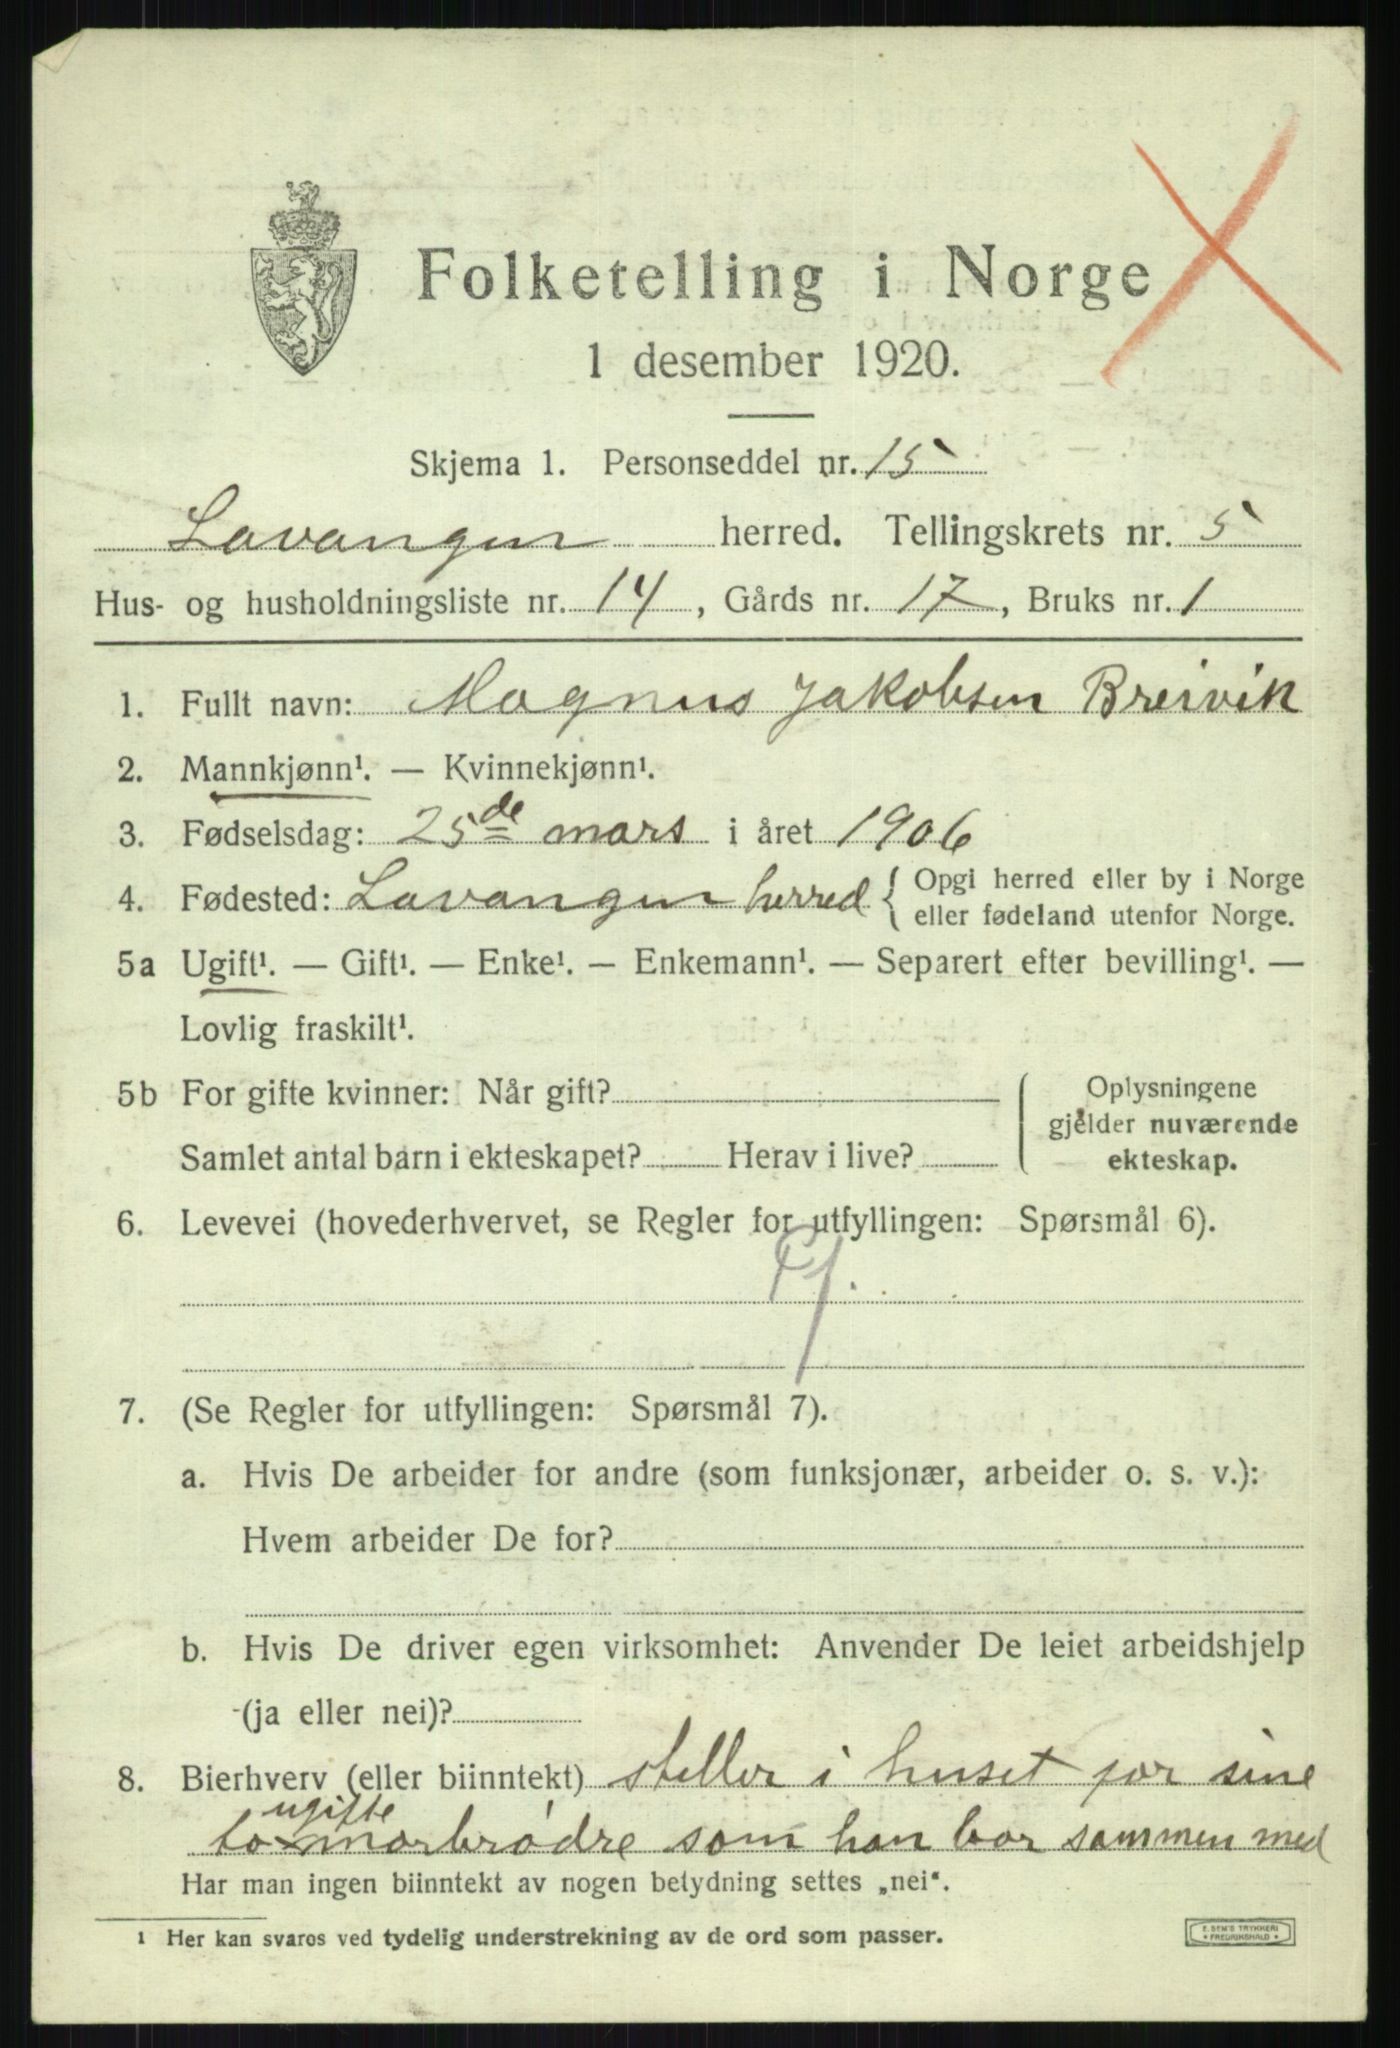 Folketelling i Norge
1 desember 1920.
Skjema 1. Personseddel nr. 15
Lavangen herred. Tellingskrets nr. 5
Hus- og husholdningsliste nr. 14, Gårds nr. 17, Bruks nr. 1
1. Fullt navn: Magnus Jakobsen Breivik
2. Mannkjønn¹. — Kvinnekjønn¹.
3. Fødselsdag: 25de mars i året 1906
4. Fødested: Lavangen herred { Opgi herred eller by i Norge
eller fødeland utenfor Norge.
5a Ugift¹. — Gift¹. — Enke¹. — Enkemann¹. — Separert efter bevilling¹. —
Lovlig fraskilt¹.
5b For gifte kvinner: Når gift?
Samlet antal barn i ekteskapet? Herav i live?
Oplysningene
gjelder nuværende
ekteskap.
6. Levevei (hovederhvervet, se Regler for utfyllingen: Spørsmål 6).
7. (Se Regler for utfyllingen: Spørsmål 7).
a. Hvis De arbeider for andre (som funksjonær, arbeider o. s. v.):
Hvem arbeider De for?
b. Hvis De driver egen virksomhet: Anvender De leiet arbeidshjelp
(ja eller nei)?
8. Bierhverv (eller biinntekt) steller i huset for sine
ugifte
to morbrødre som han bor sammen med
Har man ingen biinntekt av nogen betydning settes „nei“.
¹ Her kan svares ved tydelig understrekning av de ord som passer.
E. SEM'S TRYKKERI
• FREDRIKSHALD •